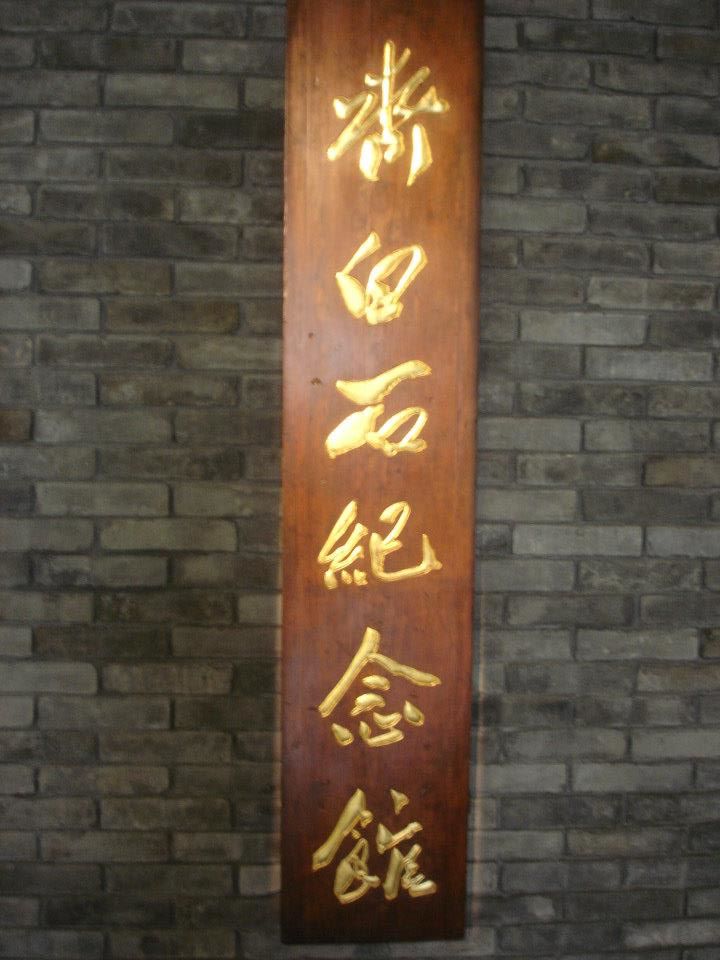 齊白石紀念館